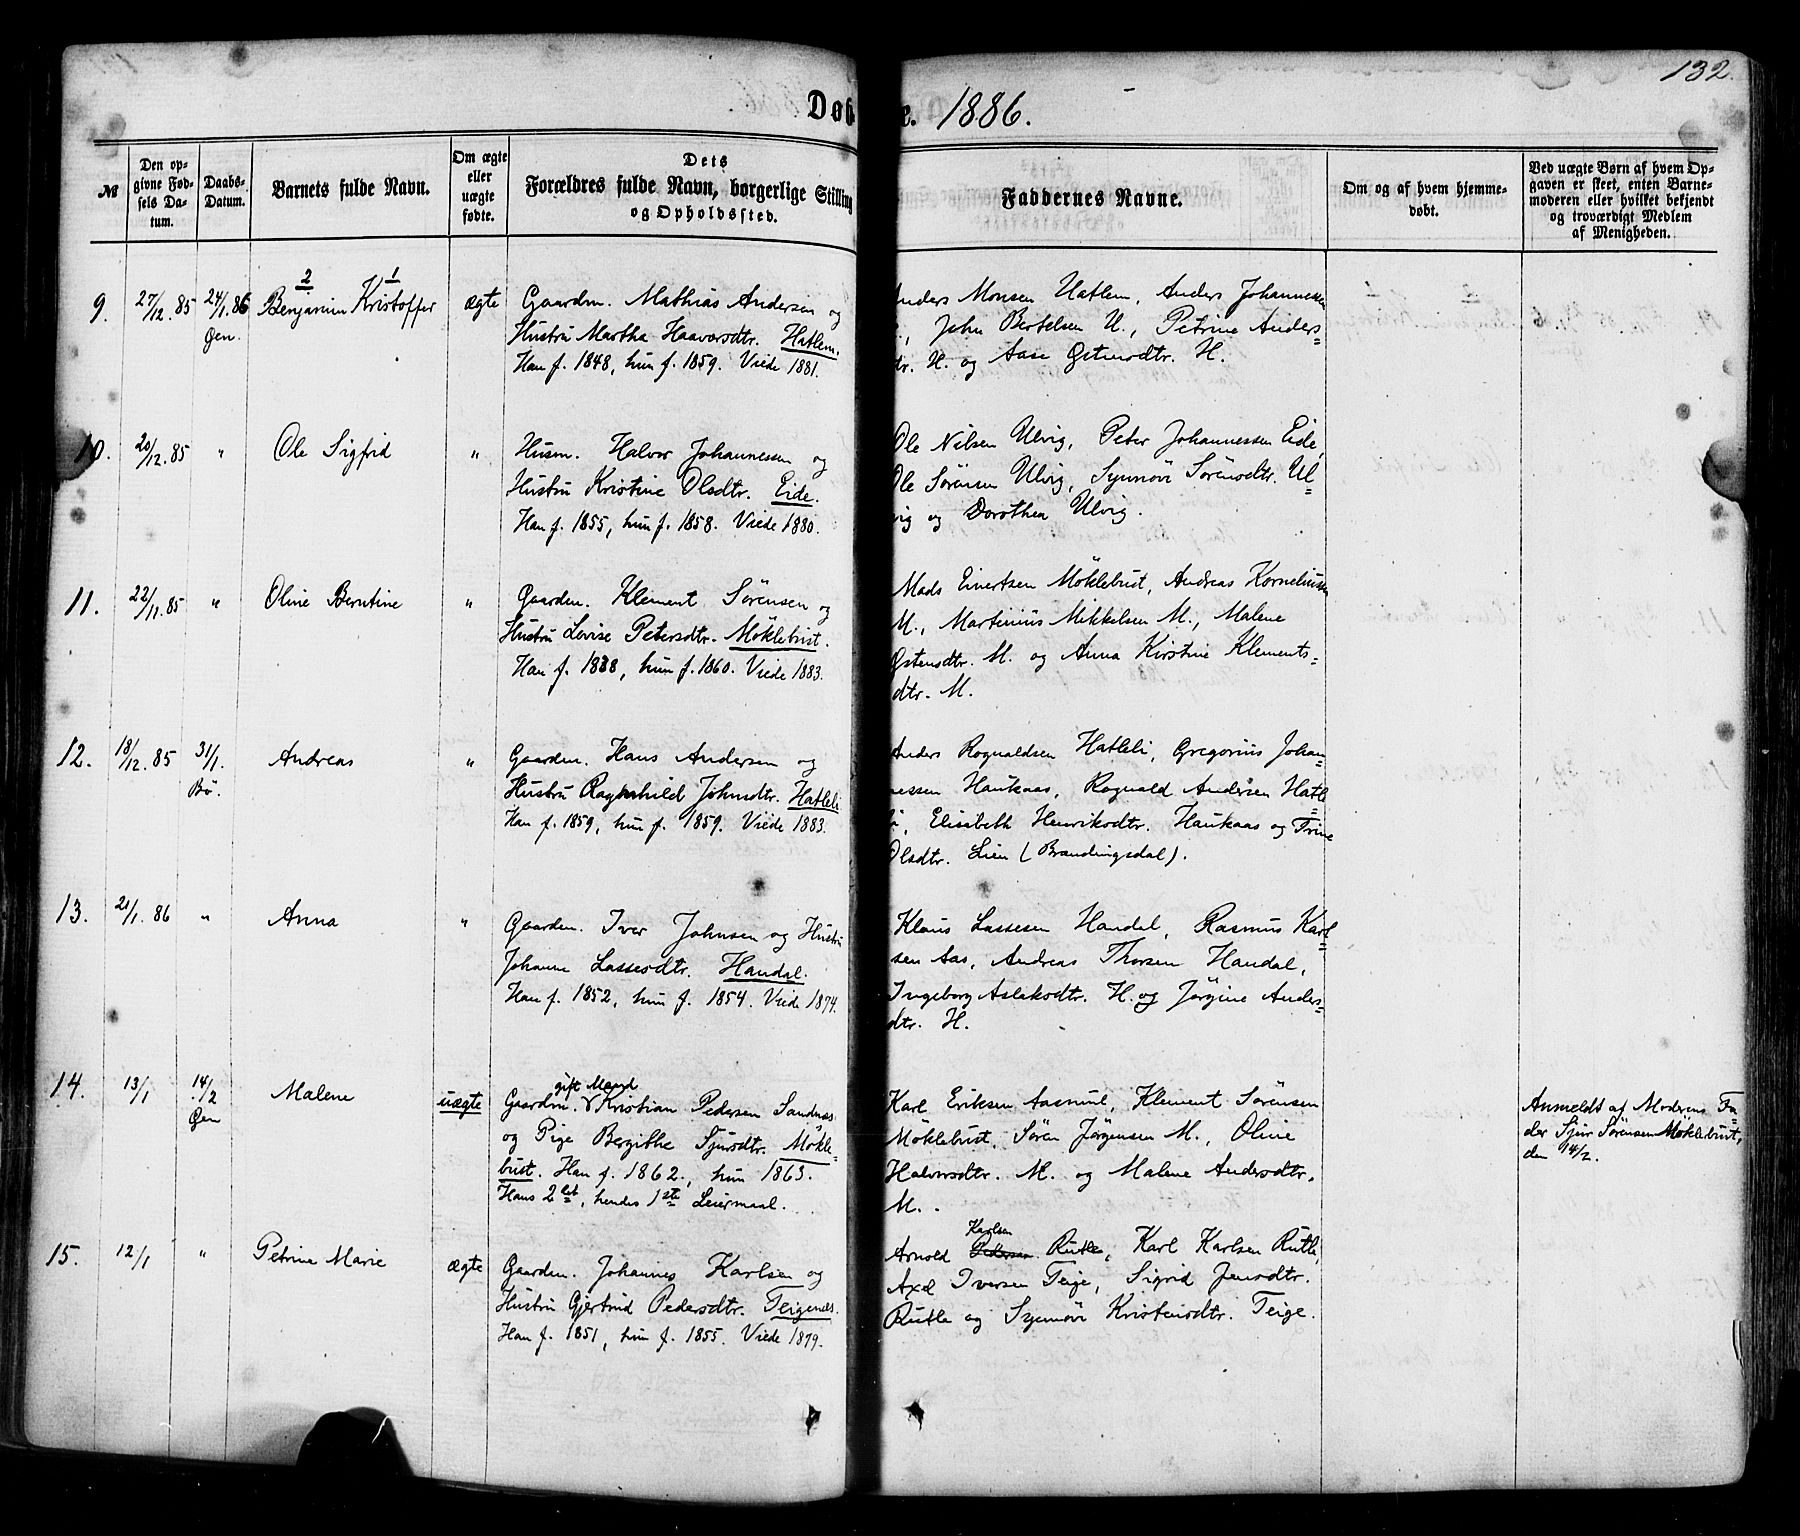 132.
Døb e. 1886.
№
Den op-
givne Fød-
sels Da-
tum.
Daabs-
Datum.
Barnets fulde Navn.
Om ægte
eller
uægte
fødte.
Dets
Forældres fulde Navn, borgerlige Stilling
og Opholdssted.
Faddernes Navne.
Om og af hvem hjemme-
døbt.
Ved uægte Børn af hvem Op-
gaven er skeet, enten Barne-
moderen eller hvilket bekjendt
og troværdigt Medlem
af Menigheden.
9.
27/12. 85
24/1. 86
Gjen.
2 1
Benjamin Kristoffer
ægte
Gaardm. Mathias Andersen og
Hustru Martha Haavarsdtr. Hatlem.
Han f. 1848, hun f. 1859. Viede 1881.
Anders Monsen Hatlem, Anders Johannessen
, John Bertelsen H., Petrine Anders=
dtr. H. og Aase Østensdtr. H.
10.
20/12. 85
"
Ole Sigfrid
"
Husm. Halvor Johannessen og
Hustru Kristine Olsdtr. Eide.
Han f. 1855, hun f. 1858. Viede 1880.
Ole Nilsen Ulvig, Peter Johannessen Eide,
Ole Sørensen Ulvig, Synnøvi Sørensdtr. Ul=
vig og Dorothea Ulvig.
11.
22/11. 85
"
Oline Berntine
"
Gaardm. Klement Sørensen og
Hustru Lovise Petersdtr. Møklebust.
Han f. 1838, hun f. 1860. Viede 1883.
Mads Einertsen Møklebust, Andreas Korneliussen
M., Martinius Mikkelsen M., Malene
Østensdtr. M. og Anna Kirstine Klements=
dtr. M.
12.
18/12. 85
31/1.
Bø.
Andreas
"
Gaardm. Hans Andersen og
Hustru Ragnhild Johnsdtr. Hatleli
Han f. 1859, hun f. 1859. Viede 1883.
Anders Rognaldsen Hatleli, Gregorius Johan=
nessen Haukaas, Rognald Andersen Hatle=
li, Elisabeth Henriksdtr. Haukaas og Trine
Olsdtr. Lien (Brandingsdal).
13.
21/1. 86
"
Anna
"
Gaardm. Iver Johnsen og Hustru
Johanne Lassesdtr. Handal.
Han f. 1852, hun f. 1854. Viede 1874.
Klaus Lassesen Handal, Rasmus Karl=
sen Aas, Andreas Thorsen Handal,
Ingeborg Aslaksdtr. H. og Jørgine Anders=
dtr. H.
14.
13/1
14/2
Gjen
Malene
uægte
gift Mand
Gaardm. Kristian Pedersen Sandnæs
og Pige Bergithe Sjursdtr. Møkle-
bust. Han f. 1862., hun 1863.
Hans 2det, hendes 1ste Leiermaal.
Karl Eriksen Aasmul, Klement Sørensen
Møklebust, Søren Jørgensen M., Oline
Halvorsdtr. M. og Malene Andersdtr.
M.
Anmeldt af Moderens Fa=
der Sjur Sørensen Møklebust,
den 14/2.
15.
12/1
"
Petrine Marie
ægte
Gaardm. Johannes Karlsen og
Hustru Gjertrud Pedersdtr. Teigenæs.
Han f. 1851, hun f. 1855. Viede 1879.
Karlsen
Arnold Pedersen Rutle, Karl Karlsen Rutle,
Axel Iversen Teige, Sigrid Jensdtr.
Rutle og Synnøvi Kristensdtr. Teige.